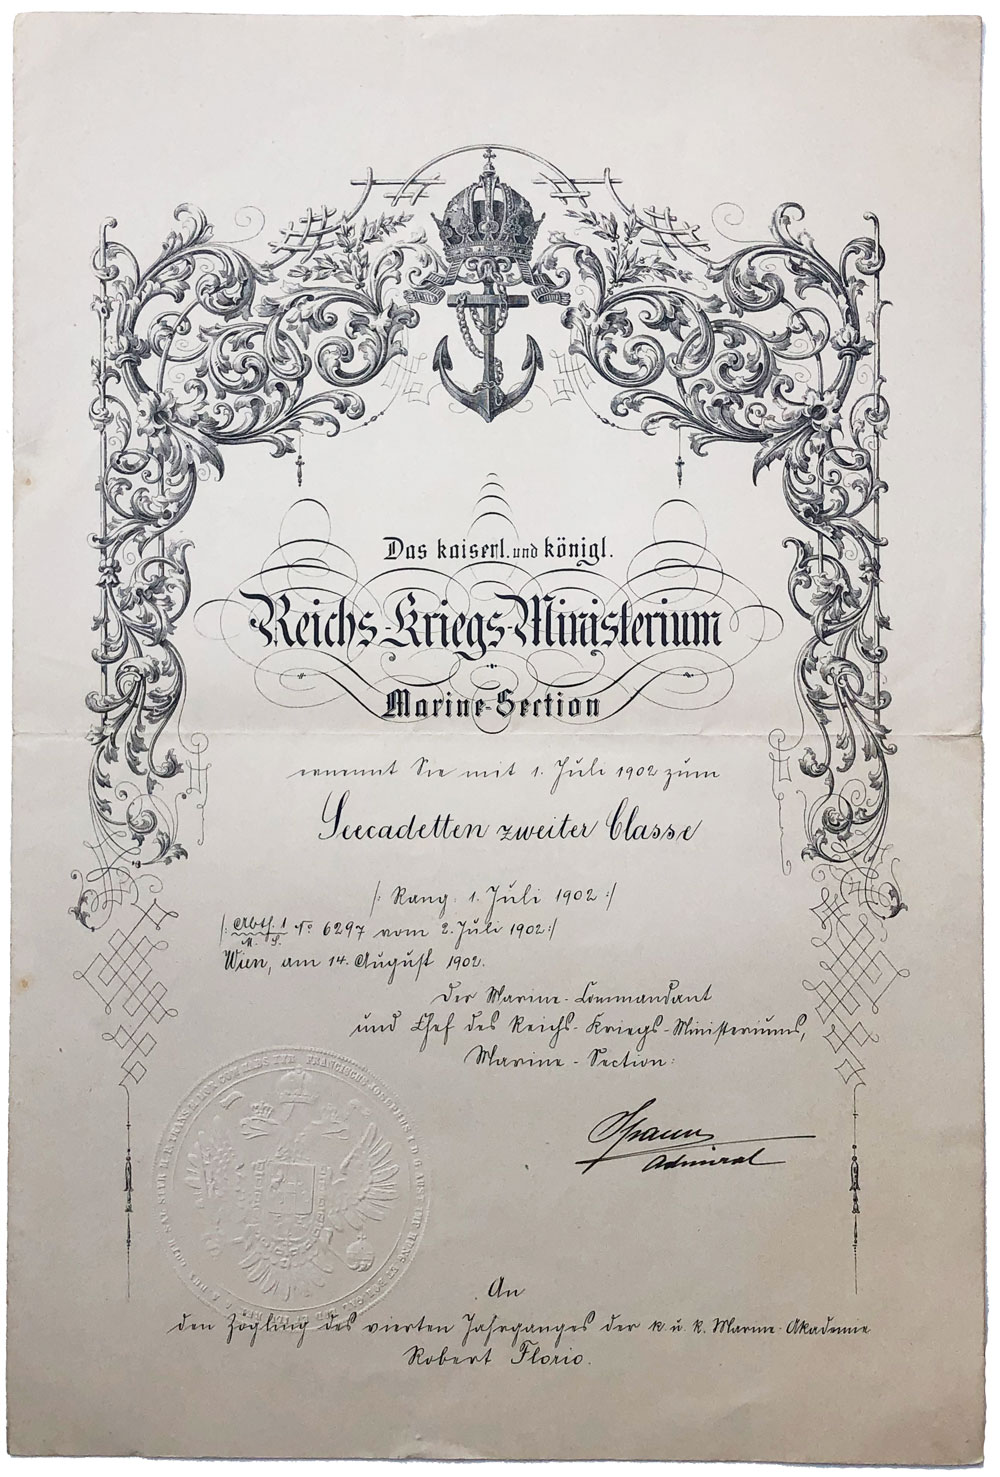 Das kaiserl. und königl.
Reichs-Kriegs-Ministerium
Marine-Section
ernennt Sie mit 1. Juli 1902 zum
Seecadetten zweiter Classe
/: Rang: 1. Juli 1902 :/
/: Abth. 1 No 6297 vom 2. Juli 1902 :/
M. S.
Wien, am 14. August 1902.
Der Marine-Commandant
und Chef des Reichs-Kriegs-Ministeriums,
Marine-Section:
Spaun
Admiral
FRANCISCUS IOSEPHUS I D G AUST
An
den Zögling des vierten Jahrganges der k. u. k. Marine-Akademie
Robert Florio.